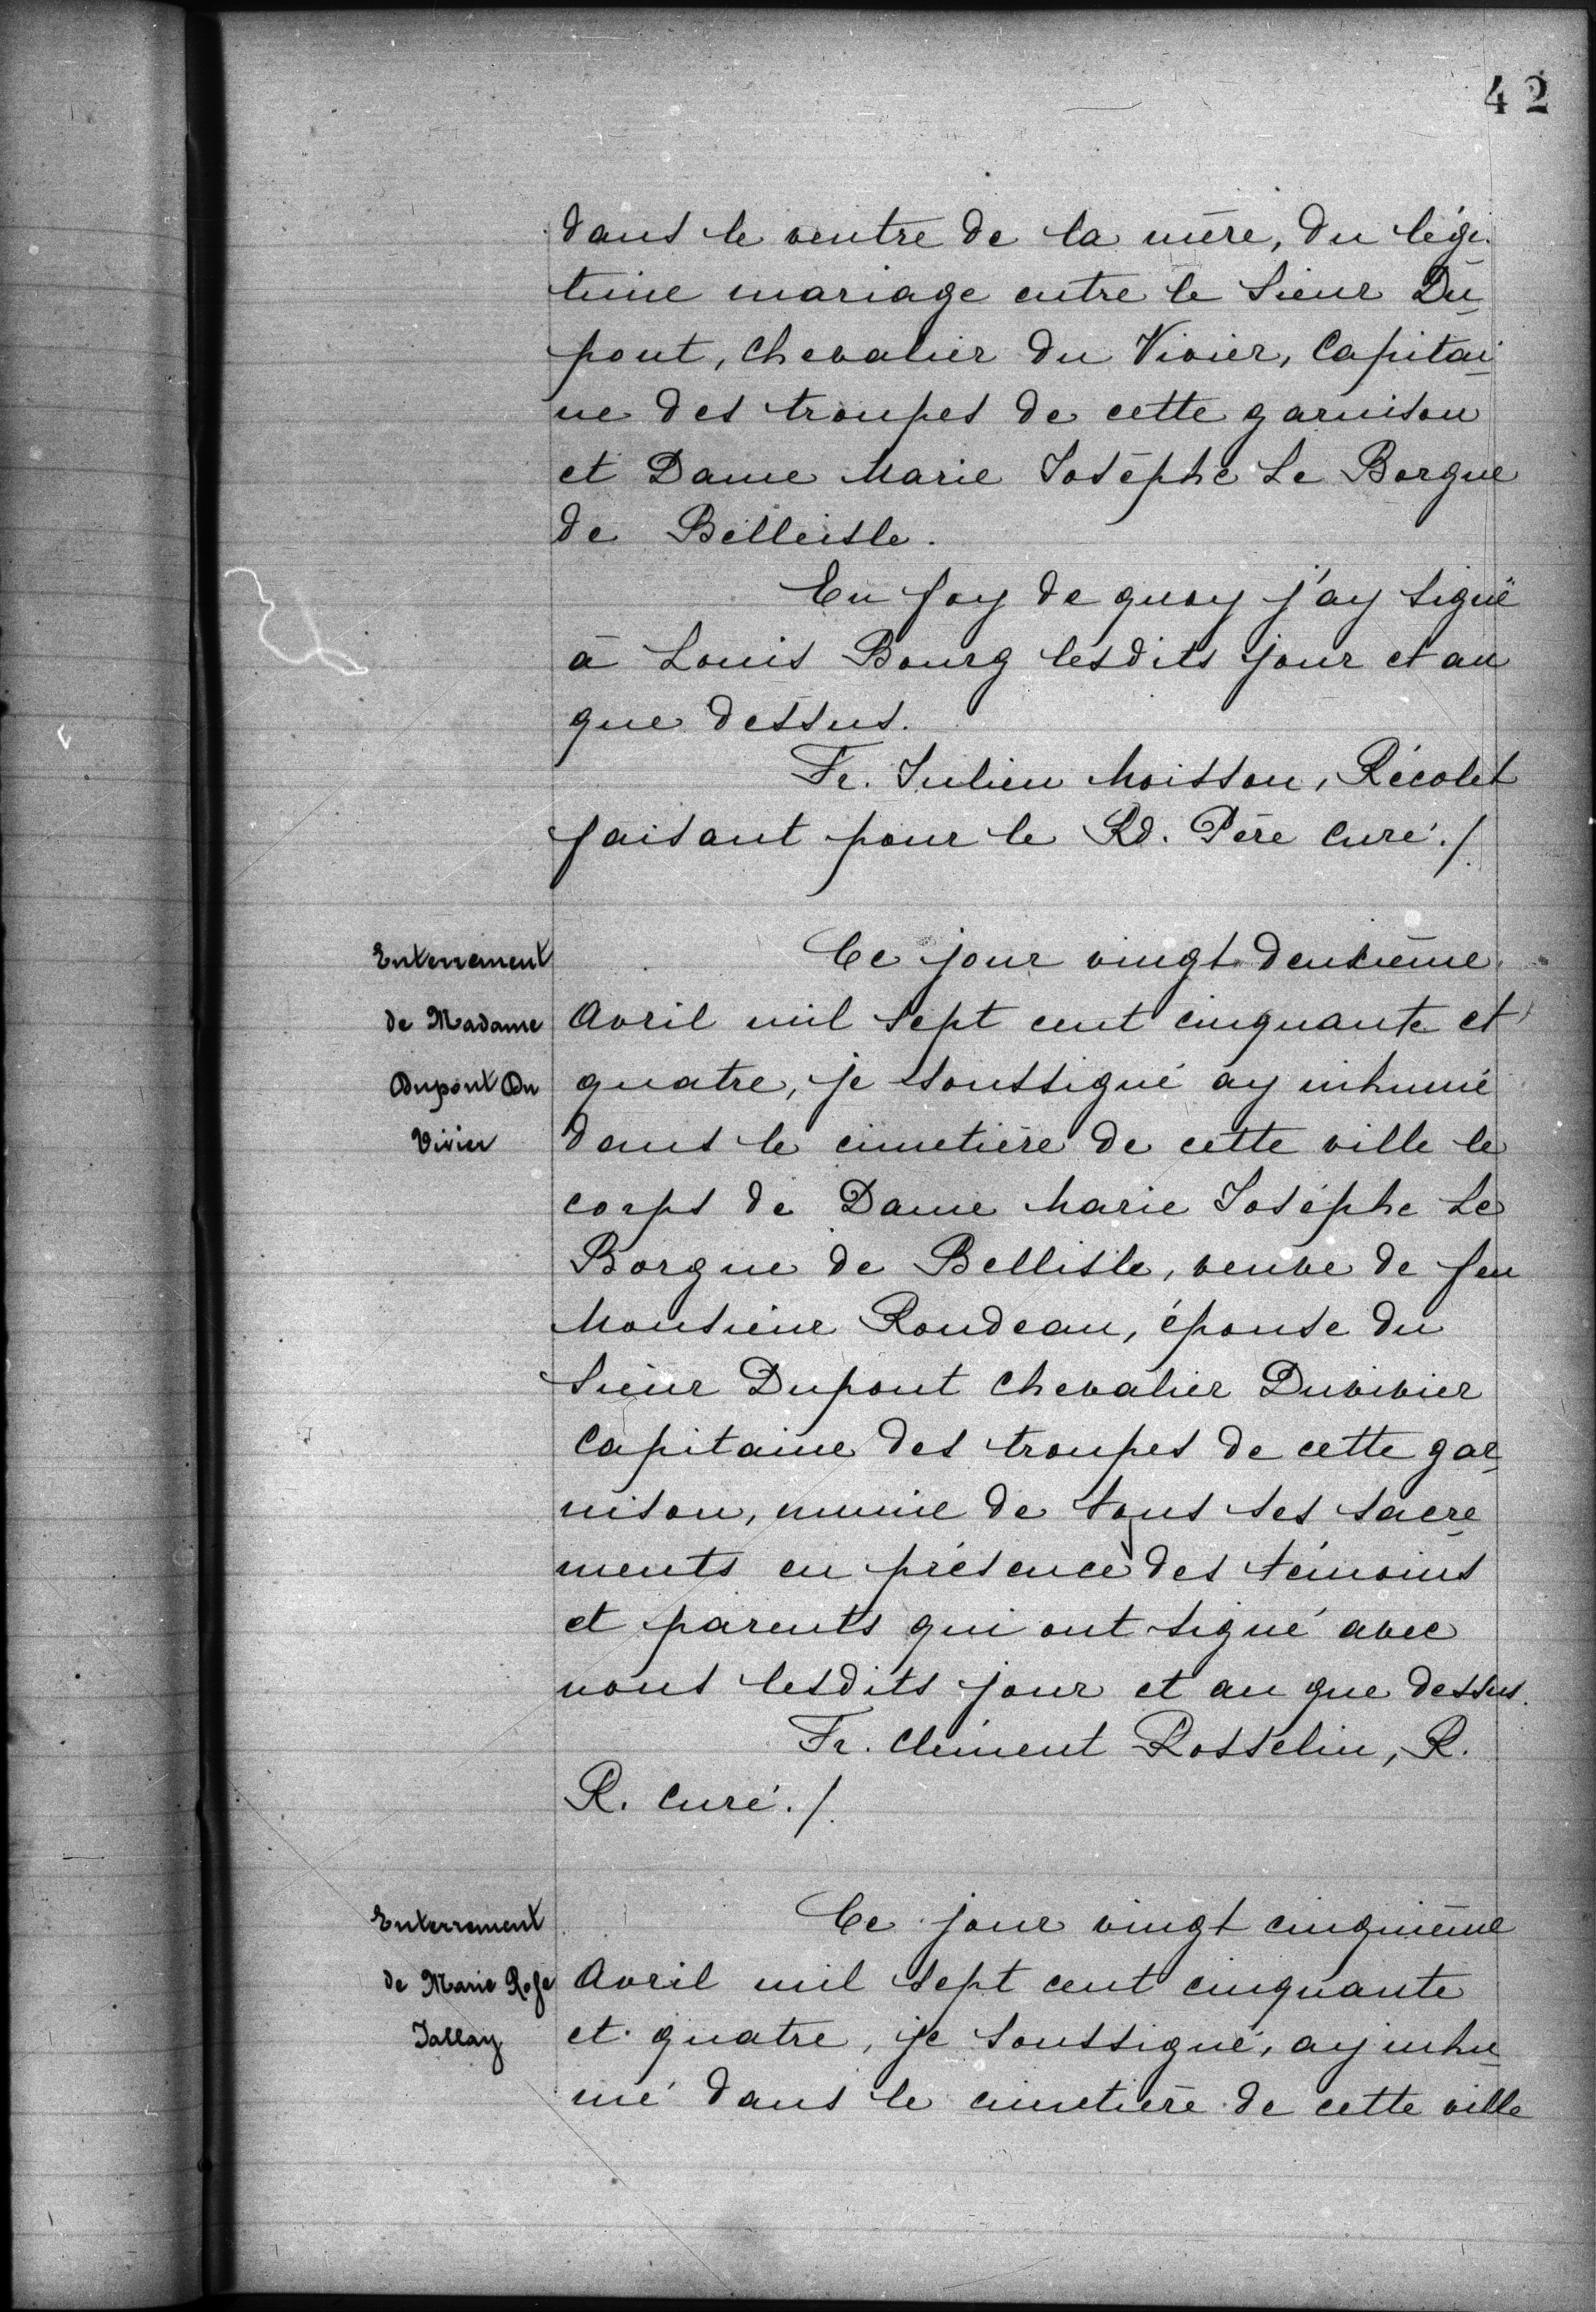 42
dans le ventre de la mère, du légi-
time mariage entre le Sieur Du-
pont, Chevalier du Vivier, Capitai-
ne des troupes de cette garnison
et Dame Marie Josèphe Le Borgne
de Belleisle.
En foy de quoy j'ay signé
à Louis Bourg lesdits jour et an
que dessus.
Fr. Julien Moisson, Récolet
faisant pour le Rd. Père Curé./.
Enterrement
de Madame
Dupont Du
Vivier
Ce jour vingt deuxième
Avril mil sept cent cinquante et
quatre, je soussigné ay inhumé
dans le cimetière de cette ville le
corps de Dame Marie Josèphe Le
Borgne de Bellisle, veuve de feu
Monsieur Rondeau, épouse du
Sieur Dupont Chevalier Duvivier
Capitaine des troupes de cette gar-
nison, munie de tous ses sacre-
ments en présence des témoins
et parents qui ont signé avec
nous lesdits jour et an que dessus.
Fr. Clément Rosselin, R.
R. Curé./.
Enterrement
de Marie Rose
Jallay
Ce jour vingt cinquième
Avril mil sept cent cinquante
et quatre, je soussigné, ay inhu-
mé dans le cimetière de cette ville